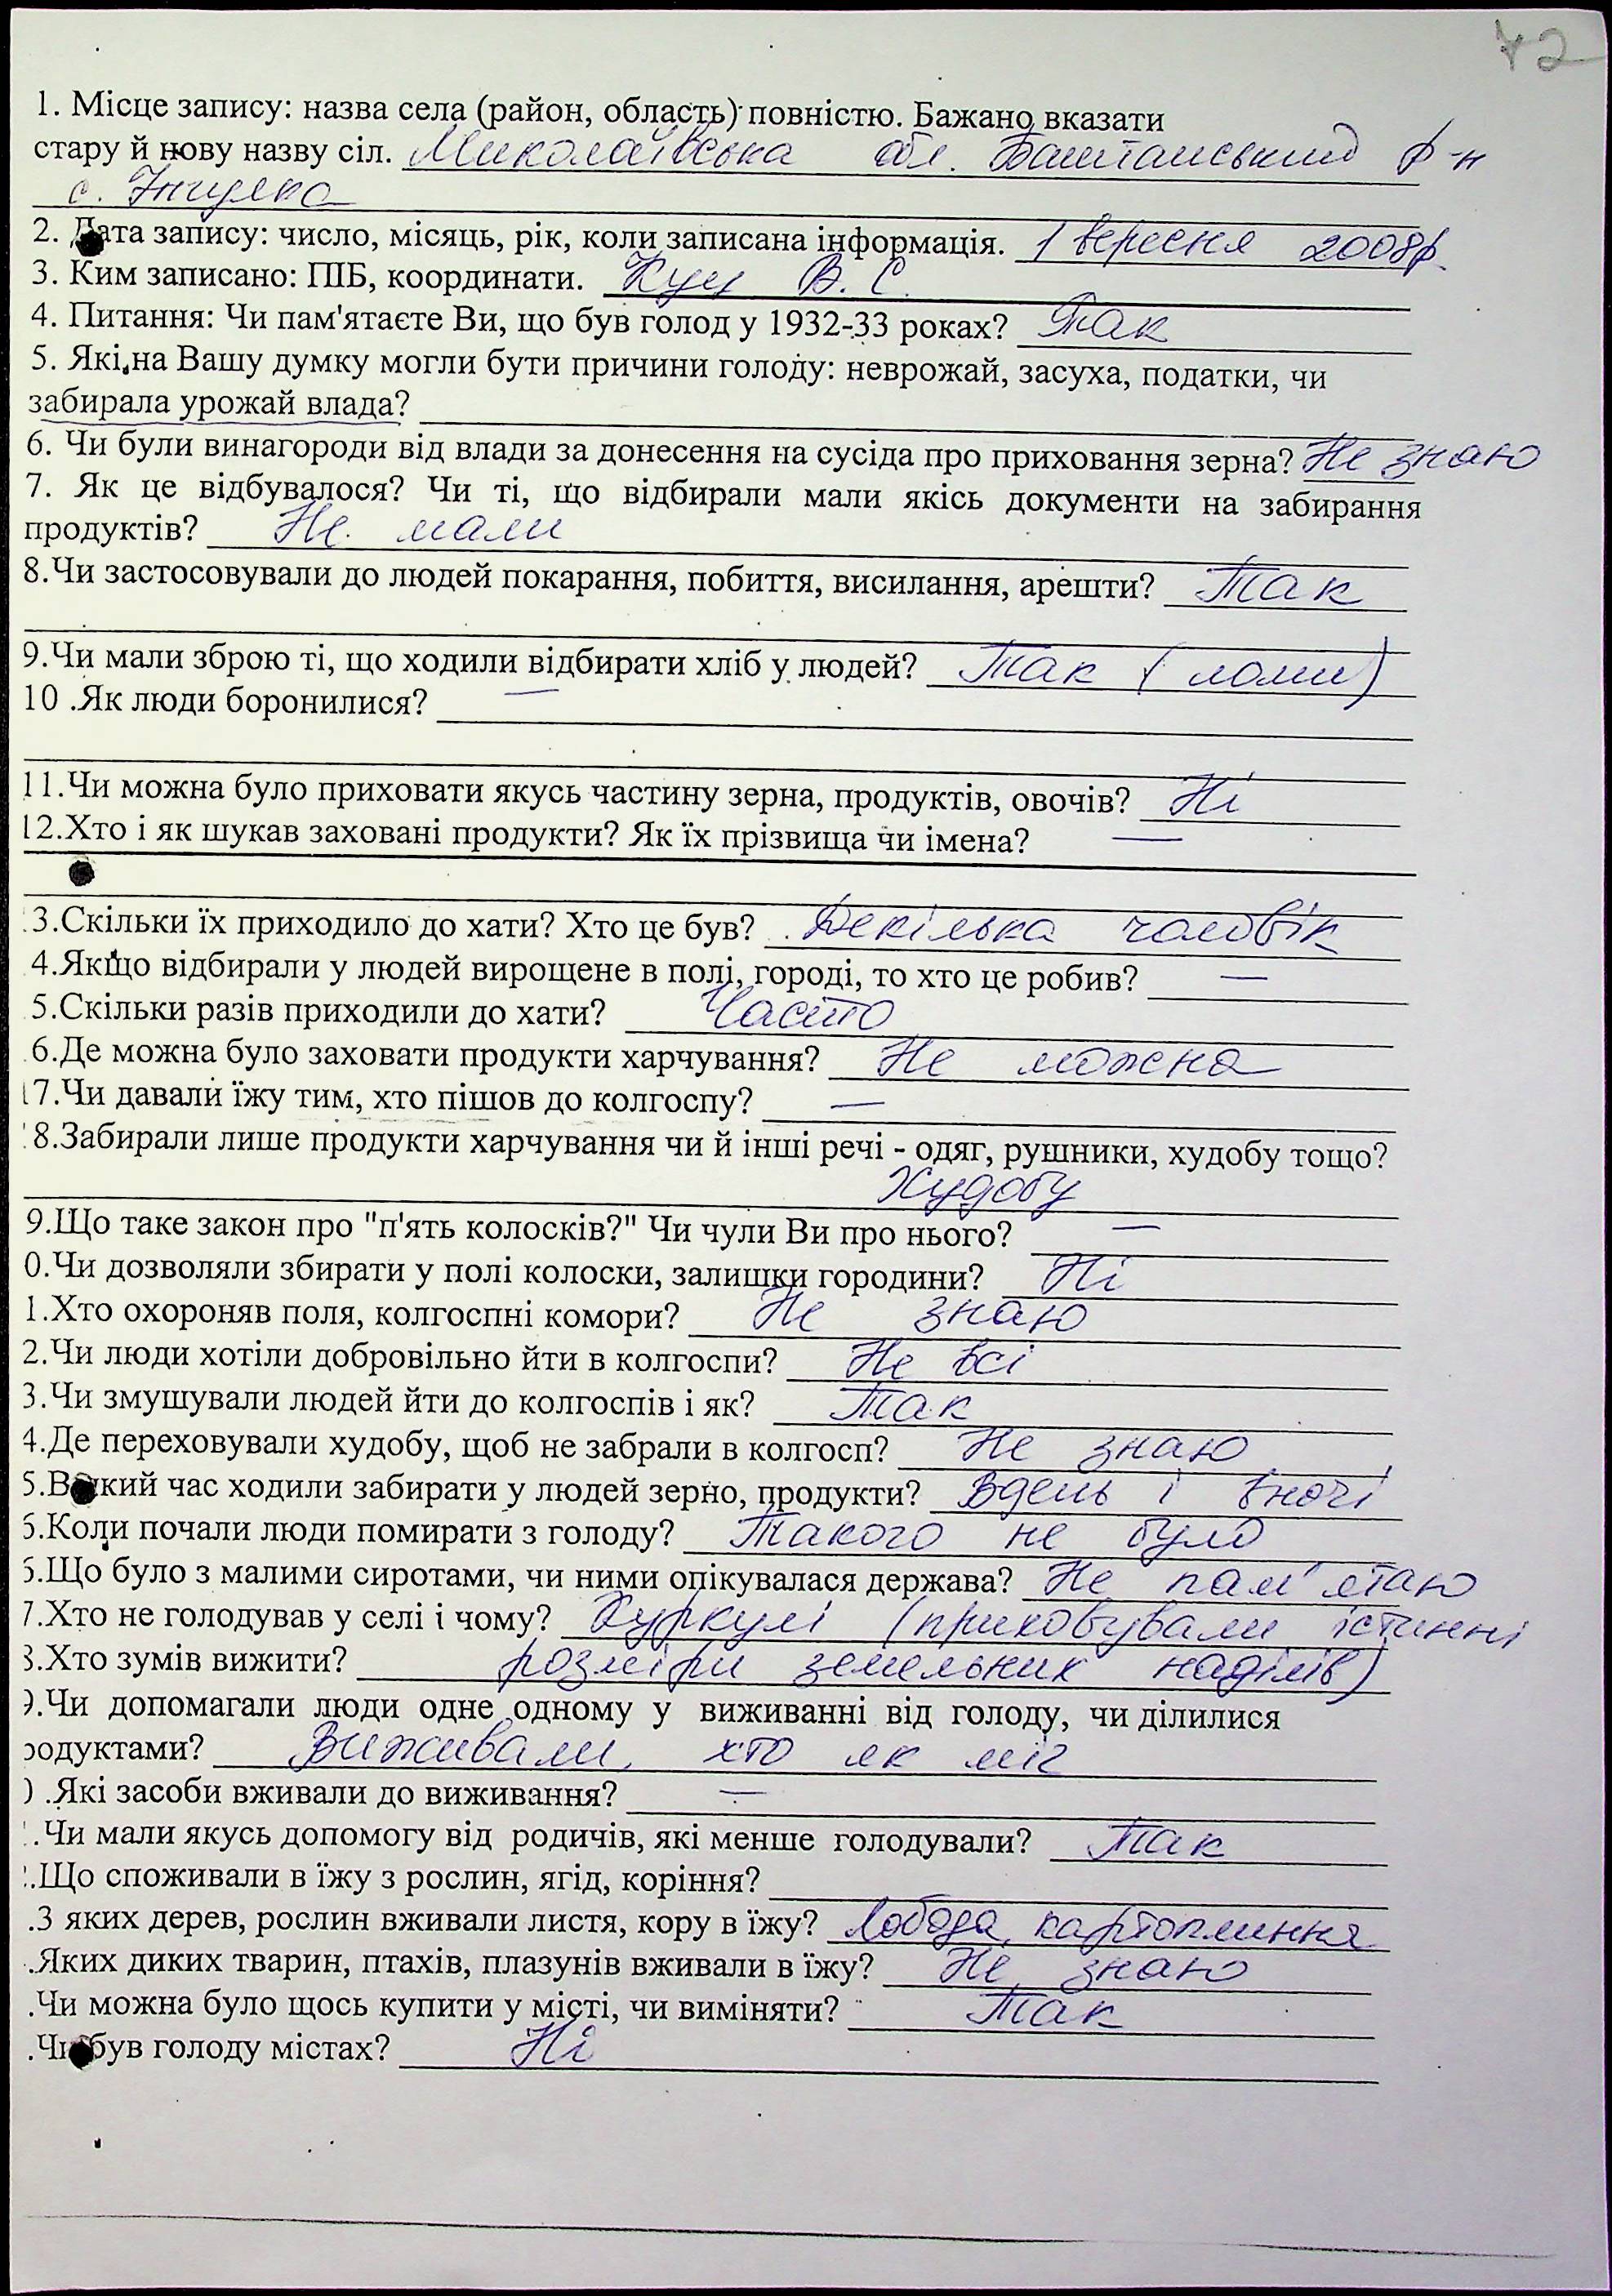 72
1. Місце запису: назва села (район, область) повністю. Бажано вказати
стару й нову назву сіл. Миколаївська обл. Баштанський р-н
с. Інгулка
2. Дата запису: число, місяць, рік, коли записана інформація. 1 вересня 2008р.
3. Ким записано: ПІБ, координати. Куц В. С.
4. Питання: Чи пам'ятаєте Ви, що був голод у 1932-33 роках? Так
5. Які на Вашу думку могли бути причини голоду: неврожай, засуха, податки, чи
забирала урожай влада?
6. Чи були винагороди від влади за донесення на сусіда про приховання зерна? Не знаю
7. Як це відбувалося? Чи ті, що відбирали мали якісь документи на забирання
продуктів? Не мали
8.Чи застосовували до людей покарання, побиття, висилання, арешти? Так
9.Чи мали зброю ті, що ходили відбирати хліб у людей? Так (ломи)
10 .Як люди боронилися? —
11.Чи можна було приховати якусь частину зерна, продуктів, овочів? Ні
12.Хто і як шукав заховані продукти? Як їх прізвища чи імена? —
3.Скільки їх приходило до хати? Хто це був? Декілька чоловік
4.Якщо відбирали у людей вирощене в полі, городі, то хто це робив? —
5.Скільки разів приходили до хати? Часто
6.Де можна було заховати продукти харчування? Не можна
17.Чи давали їжу тим, хто пішов до колгоспу? —
8.Забирали лише продукти харчування чи й інші речі - одяг, рушники, худобу тощо?
Худобу
9.Що таке закон про "п'ять колосків?" Чи чули Ви про нього? —
0.Чи дозволяли збирати у полі колоски, залишки городини? Ні
1.Хто охороняв поля, колгоспні комори? Не знаю
2.Чи люди хотіли добровільно йти в колгоспи? Не всі
3.Чи змушували людей йти до колгоспів і як? Так
4.Де переховували худобу, щоб не забрали в колгосп? Не знаю
5.В який час ходили забирати у людей зерно, продукти? Вдень і вночі
5.Коли почали люди помирати з голоду? Такого не було
6.Що було з малими сиротами, чи ними опікувалася держава? Не пам'ятаю
7.Хто не голодував у селі і чому? Куркулі (приховували істинні
8.Хто зумів вижити? розміри земельних наділів)
9.Чи допомагали люди одне одному у виживанні від голоду, чи ділилися
родуктами? Виживали, хто як міг
) .Які засоби вживали до виживання? —
.Чи мали якусь допомогу від родичів, які менше голодували? Так
.Що споживали в їжу з рослин, ягід, коріння?
.З яких дерев, рослин вживали листя, кору в їжу? Лобода, картоплиння
.Яких диких тварин, птахів, плазунів вживали в їжу? Не знаю
.Чи можна було щось купити у місті, чи виміняти? Так
.Чи був голоду містах? Ні